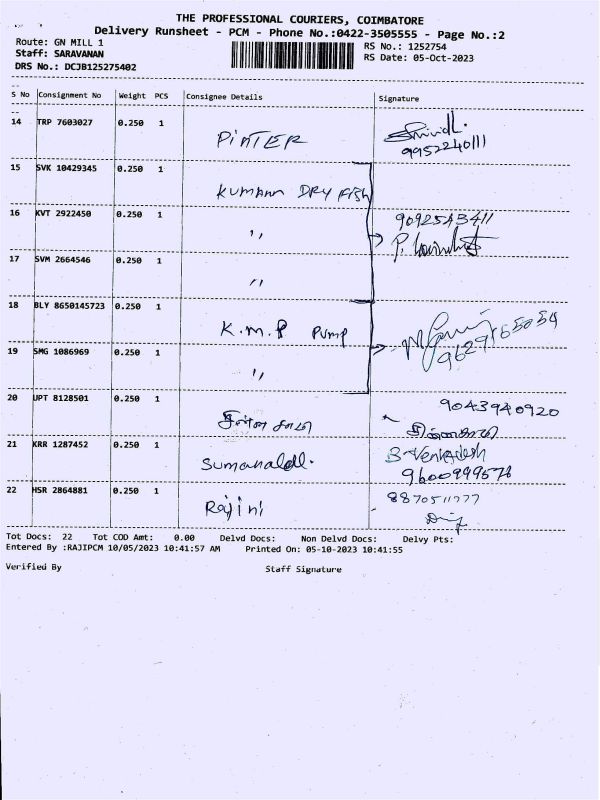 THE PROFESSIONAL COURIERS, COIMBATORE
Delivery Runsheet - PCM - Phone No.:0422-3505555 - Page No.:2
Route: GN MILL 1
RS No.: 1252754
Staff: SARAVANAN
RS Date: 05-Oct-2023
DRS No.: DCJB125275402
S No Consignment No Weight PCS Consignee Details Signature
14 TRP 7603027 0.250 1 PINTER
9952240111
15 SVK 10429345 0.250 1 KUMARAN DRY FISH
16 KVT 2922450 0.250 1 ,, 9092543411
17 SVM 2664546 0.250 1 ,,
18 BLY 8650145723 0.250 1 K.M.P PUMP 9629165054
19 SMG 1086969 0.250 1 ,,
20 UPT 8128501 0.250 1 9043940920
21 KRR 1287452 0.250 1 B. Venkadesh
9600999578
22 HSR 2864881 0.250 1 Rajini 8870511777
Tot Docs: 22 Tot COD Amt: 0.00 Delvd Docs: Non Delvd Docs: Delvy Pts:
Entered By :RAJIPCM 10/05/2023 10:41:57 AM Printed On: 05-10-2023 10:41:55
Verified By Staff Signature